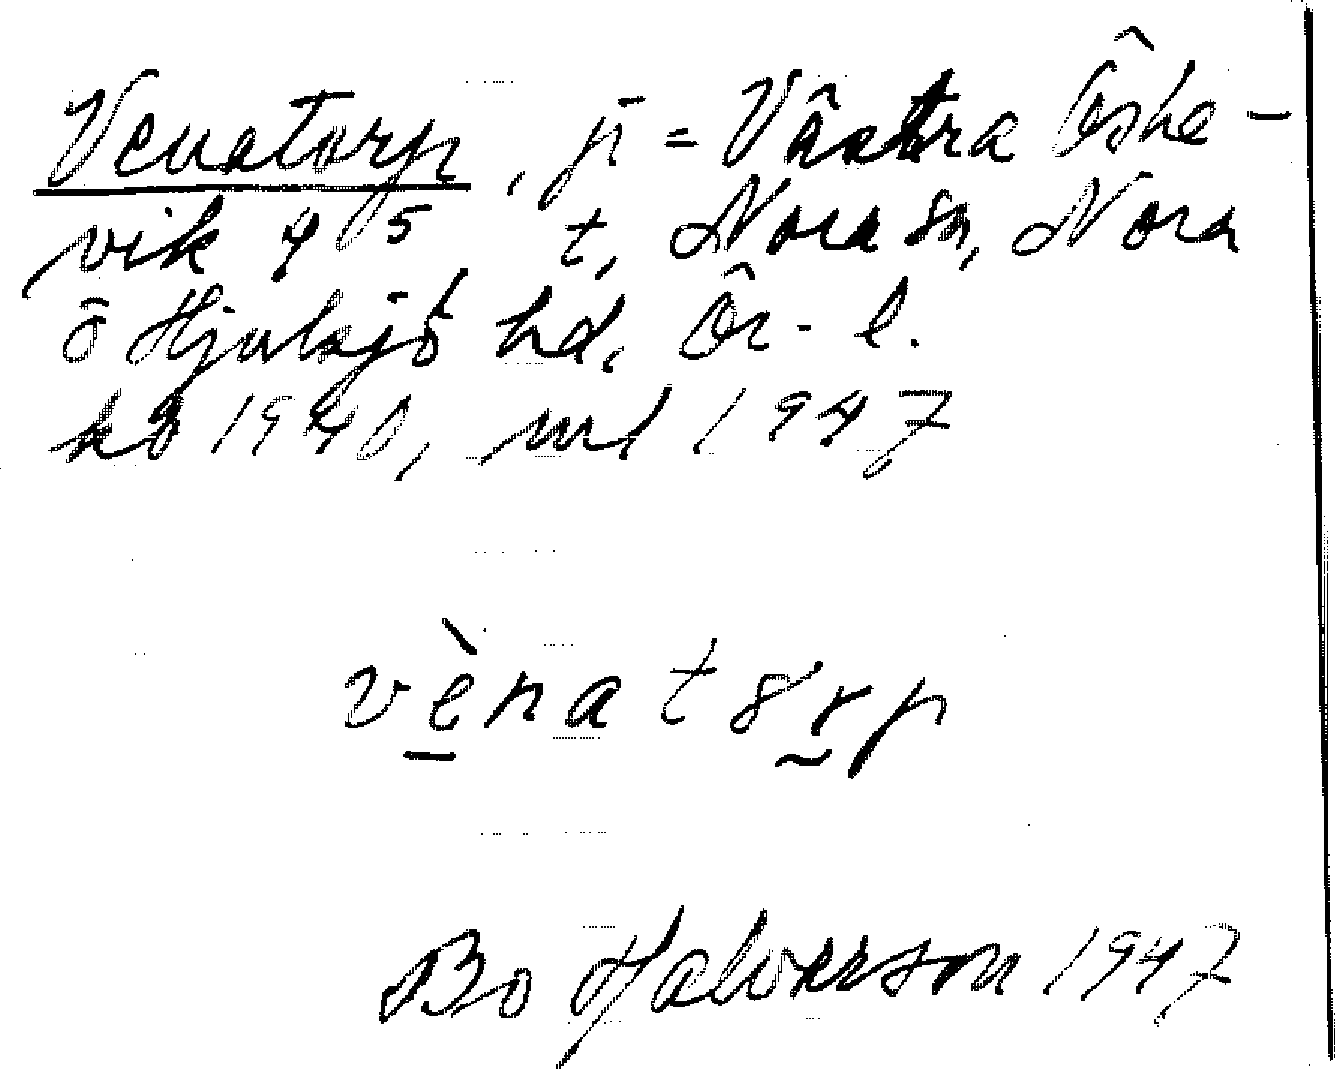 Venatorp, ji = Västra Öske-
vik 4⁵ t, Nora sn, Nora
o Hjulsjö hd, Ör. l.
kb 1940, url 1947
vènatɷrp
Bo Halvarson 1947